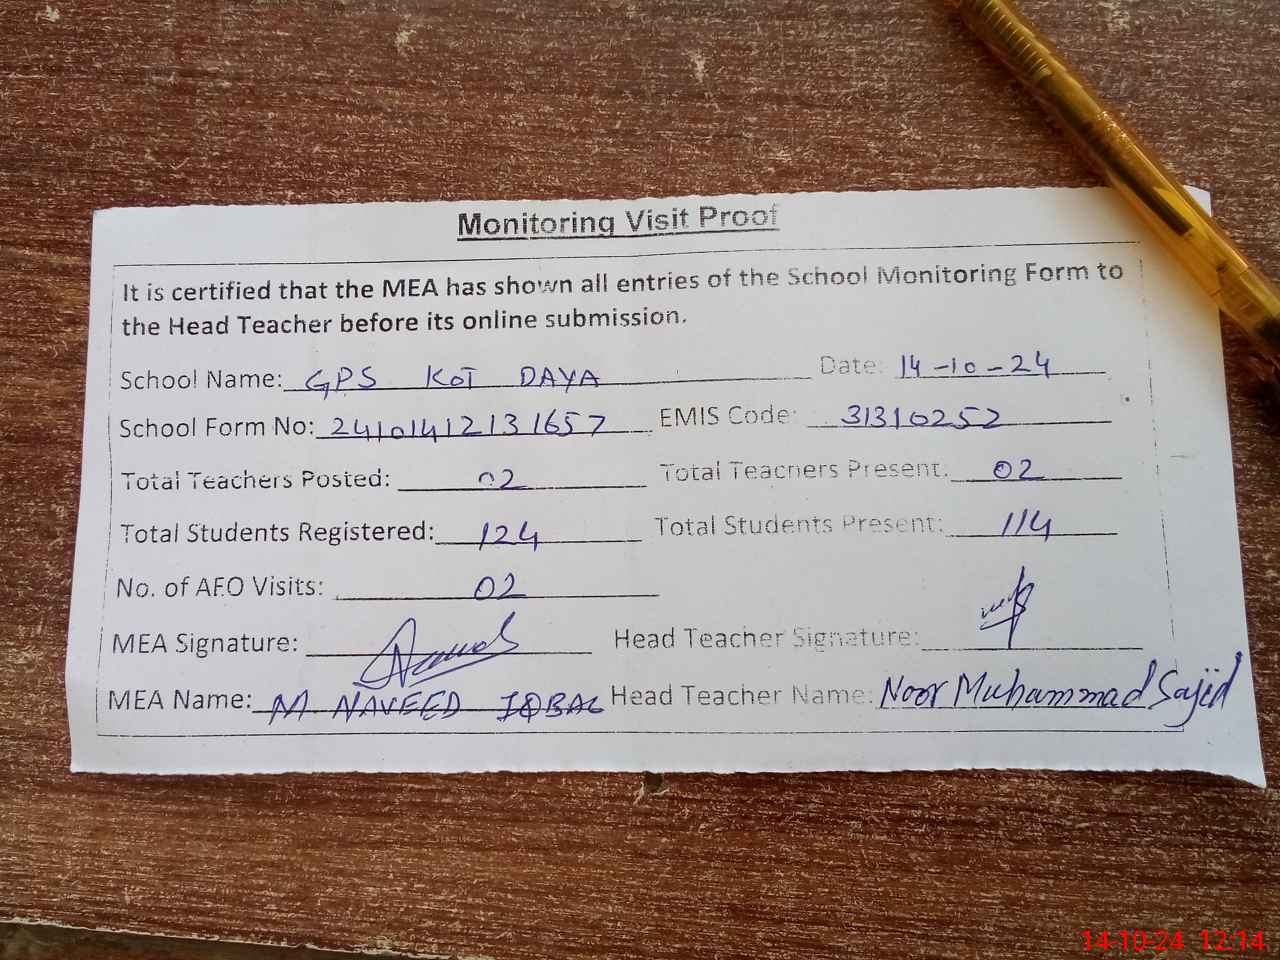 Monitoring Visit Proof
It is certified that the MEA has shown all entries of the School Monitoring Form to
the Head Teacher before its online submission.
School Name: GPS KOT DAYA Date: 14-10-24
School Form No: 24101412131657 EMIS Code: 31310252
Total Teachers Posted: 02 Total Teachers Present: 02
Total Students Registered: 124 Total Students Present: 114
No. of AEO Visits: 02
MEA Signature: Head Teacher Signature:
MEA Name: M NAVEED IQBAL Head Teacher Name: Noor Muhammad Sajid
14-10-24 12:14